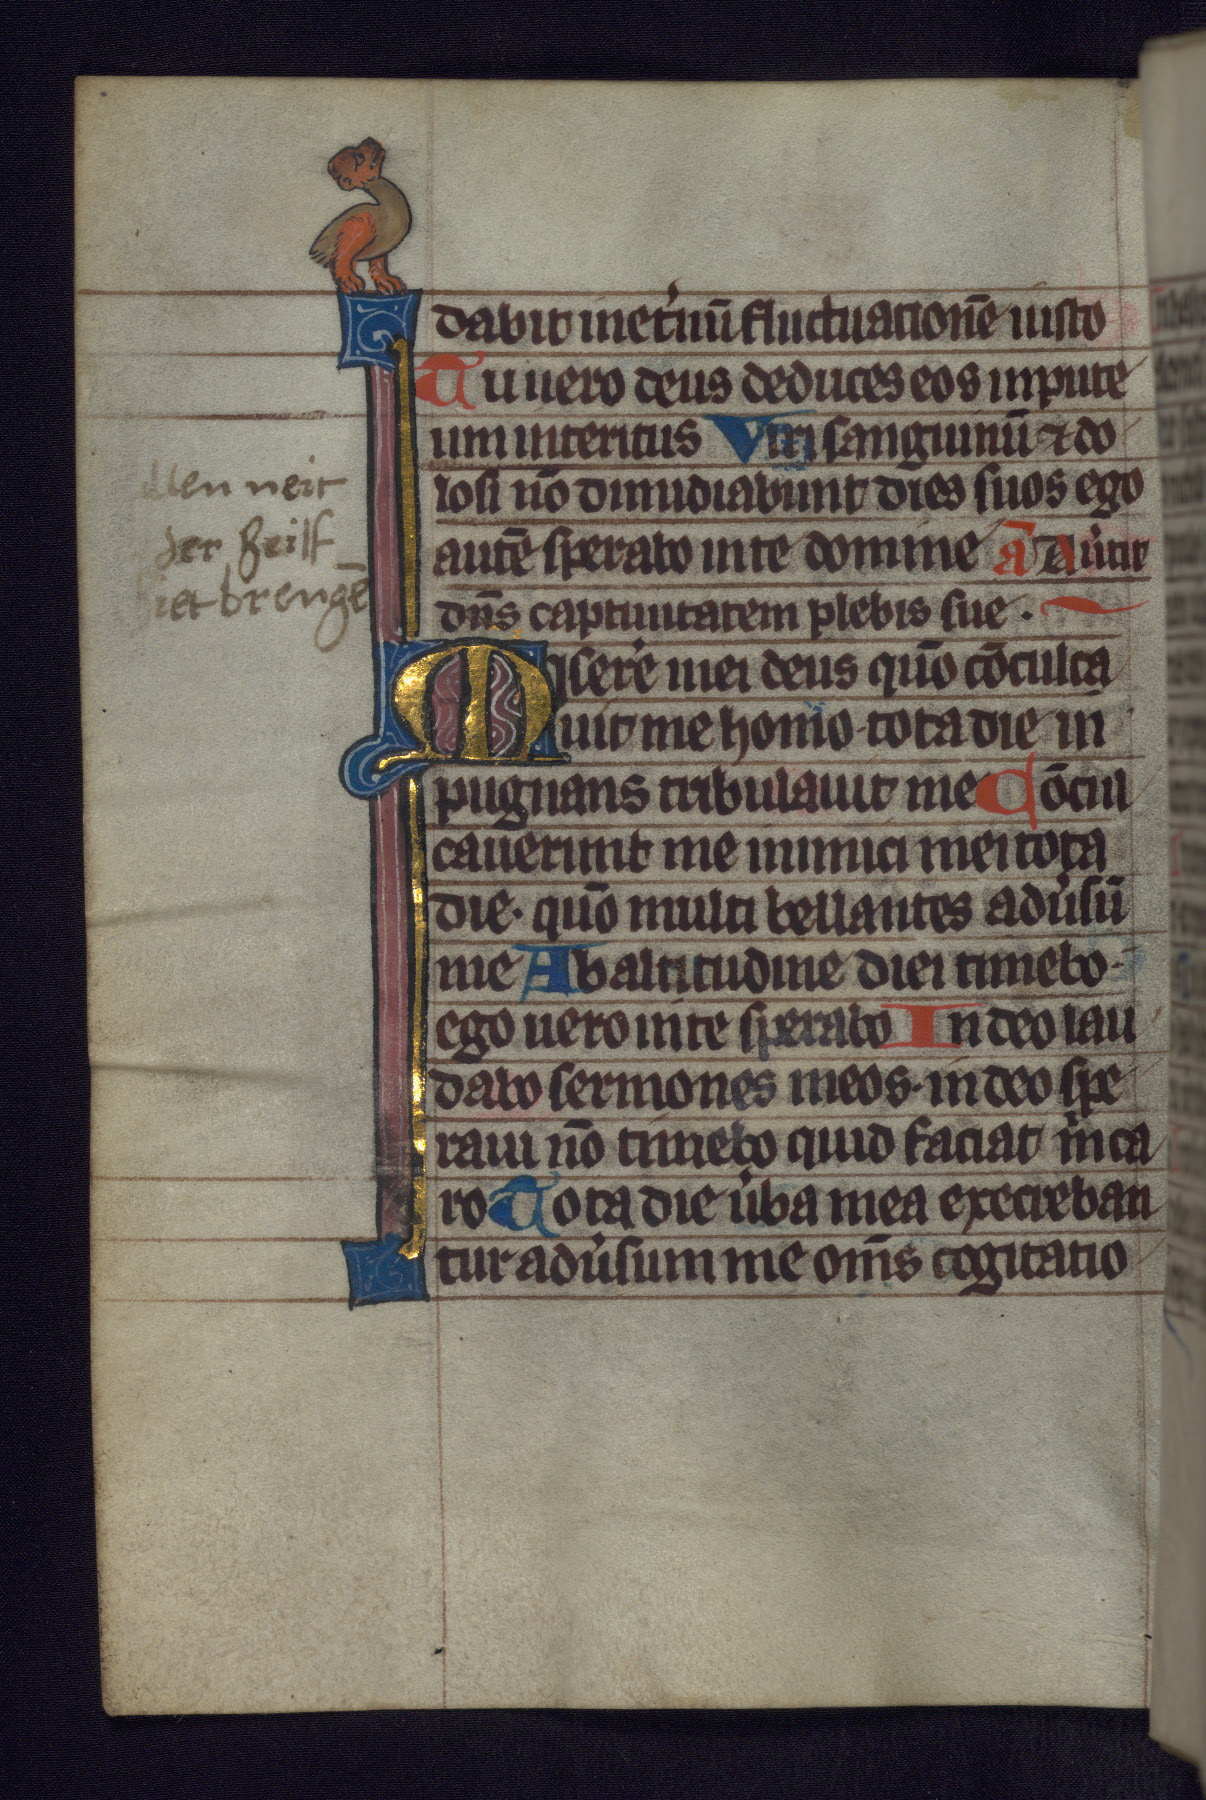 dabit inet'nū fluctuationē iusto
Tu uero deus deduces eos in pute
um interitus Viri sanguinū ⁊ do
losi nō dimidiabunt dies suos ego
autē sperabo in te domine ā Au'tit
dn̄s captiuitatem plebis sue.
Misere mei deus quō cōculca
uit me homo tota die in
pugnans tribulauit me Cōcul
cauerunt me inimici mei tota
die. quō multi bellantes adu'sū
me Ab altitudine diei timebo.
ego uero in te sperabo In deo lau
dabo sermones meos. in deo spe
raui nō timebo quid faciat m ca
ro Tota die u'ba mea execreban
tur adu'sum me om̄s cogitatio
neit
der
brengē